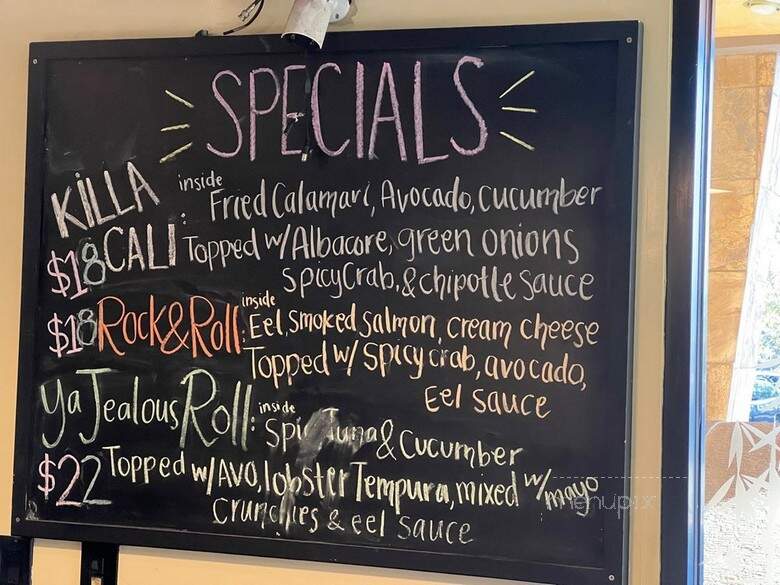 SPECIALS
KILLA inside Fried Calamari, Avocado, cucumber
$18 CALI : Topped w/Albacore, green onions
spicy Crab, & chipotle sauce
$18 Rock & Roll : inside Eel, smoked salmon, cream cheese
Topped w/ spicy crab, avocado,
Eel sauce
Ya Jealous Roll : inside Tuna & Cucumber
$22 Topped w/AVO, lobster Tempura, mixed w/ mayo
crunchies & eel sauce
menupix